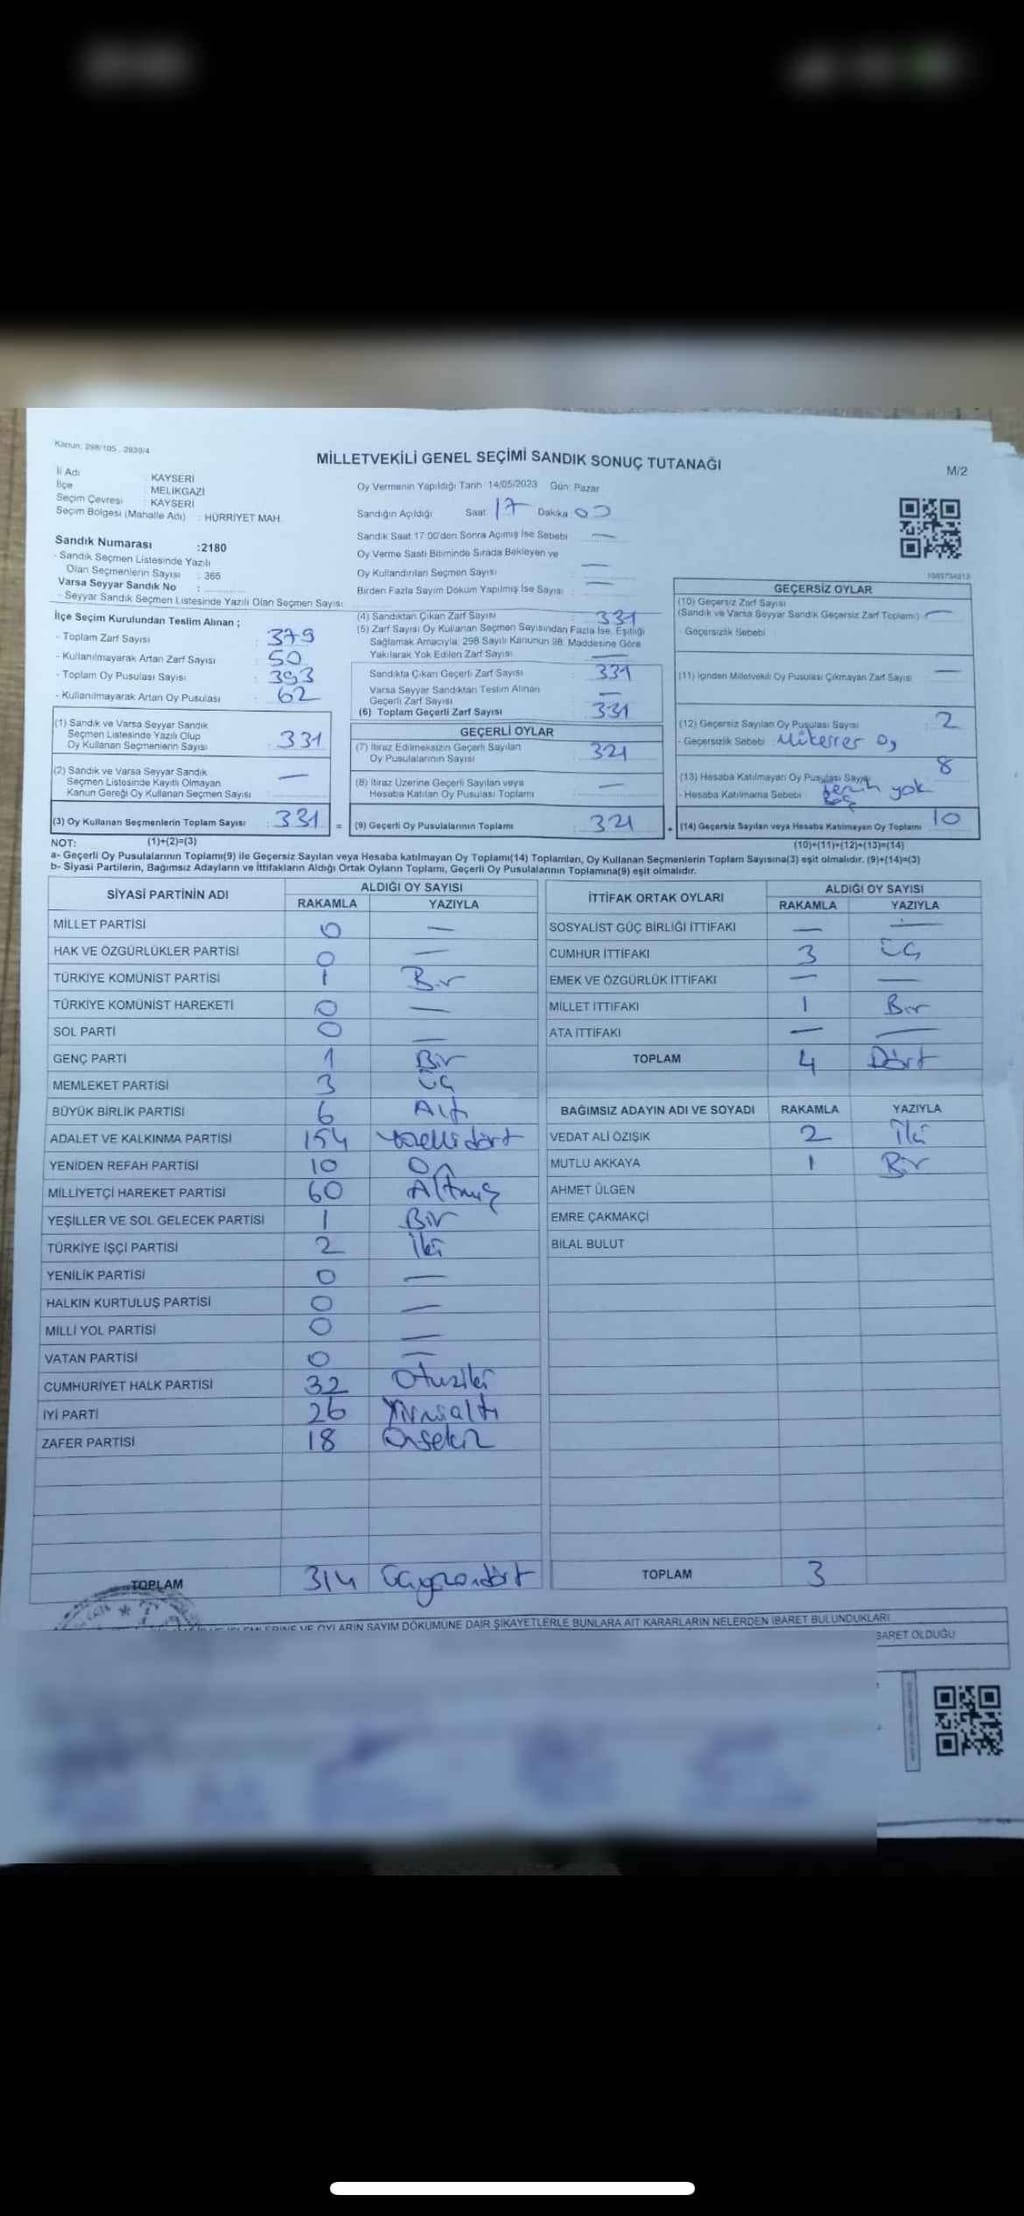 Kanun: 298/105, 2839/4
MİLLETVEKİLİ GENEL SEÇİMİ SANDIK SONUÇ TUTANAĞI
M/2
İl Adı KAYSERİ
İlçe MELİKGAZİ
Seçim Çevresi KAYSERİ
Seçim Bölgesi (Mahalle Adı) : HÜRRİYET MAH.
Sandık Numarası :2180
- Sandık Seçmen Listesinde Yazılı
Olan Seçmenlerin Sayısı : 365
Varsa Seyyar Sandık No :
- Seyyar Sandık Seçmen Listesinde Yazılı Olan Seçmen Sayısı:
Oy Vermenin Yapıldığı Tarih: 14/05/2023 Gün: Pazar
Sandığın Açıldığı Saat: 17 Dakika: 00
Sandık Saat 17:00'den Sonra Açılmış İse Sebebi —
Oy Verme Saati Bitiminde Sırada Bekleyen ve
Oy Kullandırılan Seçmen Sayısı —
Birden Fazla Sayım Döküm Yapılmış İse Sayısı —
İlçe Seçim Kurulundan Teslim Alınan ;
- Toplam Zarf Sayısı : 379
- Kullanılmayarak Artan Zarf Sayısı : 50
- Toplam Oy Pusulası Sayısı : 393
- Kullanılmayarak Artan Oy Pusulası : 62
(1) Sandık ve Varsa Seyyar Sandık
Seçmen Listesinde Yazılı Olup
Oy Kullanan Seçmenlerin Sayısı : 331
(2) Sandık ve Varsa Seyyar Sandık
Seçmen Listesinde Kayıtlı Olmayan
Kanun Gereği Oy Kullanan Seçmen Sayısı —
(3) Oy Kullanan Seçmenlerin Toplam Sayısı : 331 =
(4) Sandıktan Çıkan Zarf Sayısı 331
(5) Zarf Sayısı Oy Kullanan Seçmen Sayısından Fazla İse, Eşitliği
Sağlamak Amacıyla; 298 Sayılı Kanunun 98. Maddesine Göre
Yakılarak Yok Edilen Zarf Sayısı —
Sandıkta Çıkan Geçerli Zarf Sayısı 331
Varsa Seyyar Sandıktan Teslim Alınan
Geçerli Zarf Sayısı —
(6) Toplam Geçerli Zarf Sayısı 331
GEÇERLİ OYLAR
(7) İtiraz Edilmeksizin Geçerli Sayılan
Oy Pusulalarının Sayısı : 321
(8) İtiraz Üzerine Geçerli Sayılan veya
Hesaba Katılan Oy Pusulası Toplamı —
(9) Geçerli Oy Pusulalarının Toplamı : 321 +
GEÇERSİZ OYLAR
(10) Geçersiz Zarf Sayısı
(Sandık ve Varsa Seyyar Sandık Geçersiz Zarf Toplamı) : —
Geçersizlik Sebebi
(11) İçinden Milletvekili Oy Pusulası Çıkmayan Zarf Sayısı —
(12) Geçersiz Sayılan Oy Pusulası Sayısı : 2
- Geçersizlik Sebebi Mükerrer oy
(13) Hesaba Katılmayan Oy Pusulası Sayısı 8
- Hesaba Katılmama Sebebi tercih yok
(14) Geçersiz Sayılan veya Hesaba Katılmayan Oy Toplamı 10
NOT: (1)+(2)=(3)
(10)+(11)+(12)+(13)=(14)
a- Geçerli Oy Pusulalarının Toplamı(9) ile Geçersiz Sayılan veya Hesaba katılmayan Oy Toplamı(14) Toplamları, Oy Kullanan Seçmenlerin Toplam Sayısına(3) eşit olmalıdır. (9)+(14)=(3)
b- Siyasi Partilerin, Bağımsız Adayların ve İttifakların Aldığı Ortak Oyların Toplamı, Geçerli Oy Pusulalarının Toplamına(9) eşit olmalıdır.
SİYASİ PARTİNİN ADI ALDIĞI OY SAYISI
RAKAMLA YAZIYLA
MİLLET PARTİSİ 0 —
HAK VE ÖZGÜRLÜKLER PARTİSİ 0 —
TÜRKİYE KOMÜNİST PARTİSİ 1 Bir
TÜRKİYE KOMÜNİST HAREKETİ 0 —
SOL PARTİ 0 —
GENÇ PARTİ 1 Bir
MEMLEKET PARTİSİ 3 üç
BÜYÜK BİRLİK PARTİSİ 6 Altı
ADALET VE KALKINMA PARTİSİ 154 yüzellidört
YENİDEN REFAH PARTİSİ 10 On
MİLLİYETÇİ HAREKET PARTİSİ 60 Altmış
YEŞİLLER VE SOL GELECEK PARTİSİ 1 Bir
TÜRKİYE İŞÇİ PARTİSİ 2 İki
YENİLİK PARTİSİ 0 —
HALKIN KURTULUŞ PARTİSİ 0 —
MİLLİ YOL PARTİSİ 0 —
VATAN PARTİSİ 0 —
CUMHURİYET HALK PARTİSİ 32 Otuziki
İYİ PARTİ 26 Yirmialtı
ZAFER PARTİSİ 18 Onsekiz
TOPLAM 314
İTTİFAK ORTAK OYLARI ALDIĞI OY SAYISI
RAKAMLA YAZIYLA
SOSYALİST GÜÇ BİRLİĞİ İTTİFAKI — —
CUMHUR İTTİFAKI 3 üç
EMEK VE ÖZGÜRLÜK İTTİFAKI — —
MİLLET İTTİFAKI 1 Bir
ATA İTTİFAKI — —
TOPLAM 4 Dört
BAĞIMSIZ ADAYIN ADI VE SOYADI RAKAMLA YAZIYLA
VEDAT ALİ ÖZIŞIK 2 İki
MUTLU AKKAYA 1 Bir
AHMET ÜLGEN
EMRE ÇAKMAKÇİ
BİLAL BULUT
TOPLAM 3
OYLARIN SAYIM DÖKÜMÜNE DAİR ŞİKAYETLERLE BUNLARA AİT KARARLARIN NELERDEN İBARET BULUNDUKLARI
OLDUĞU